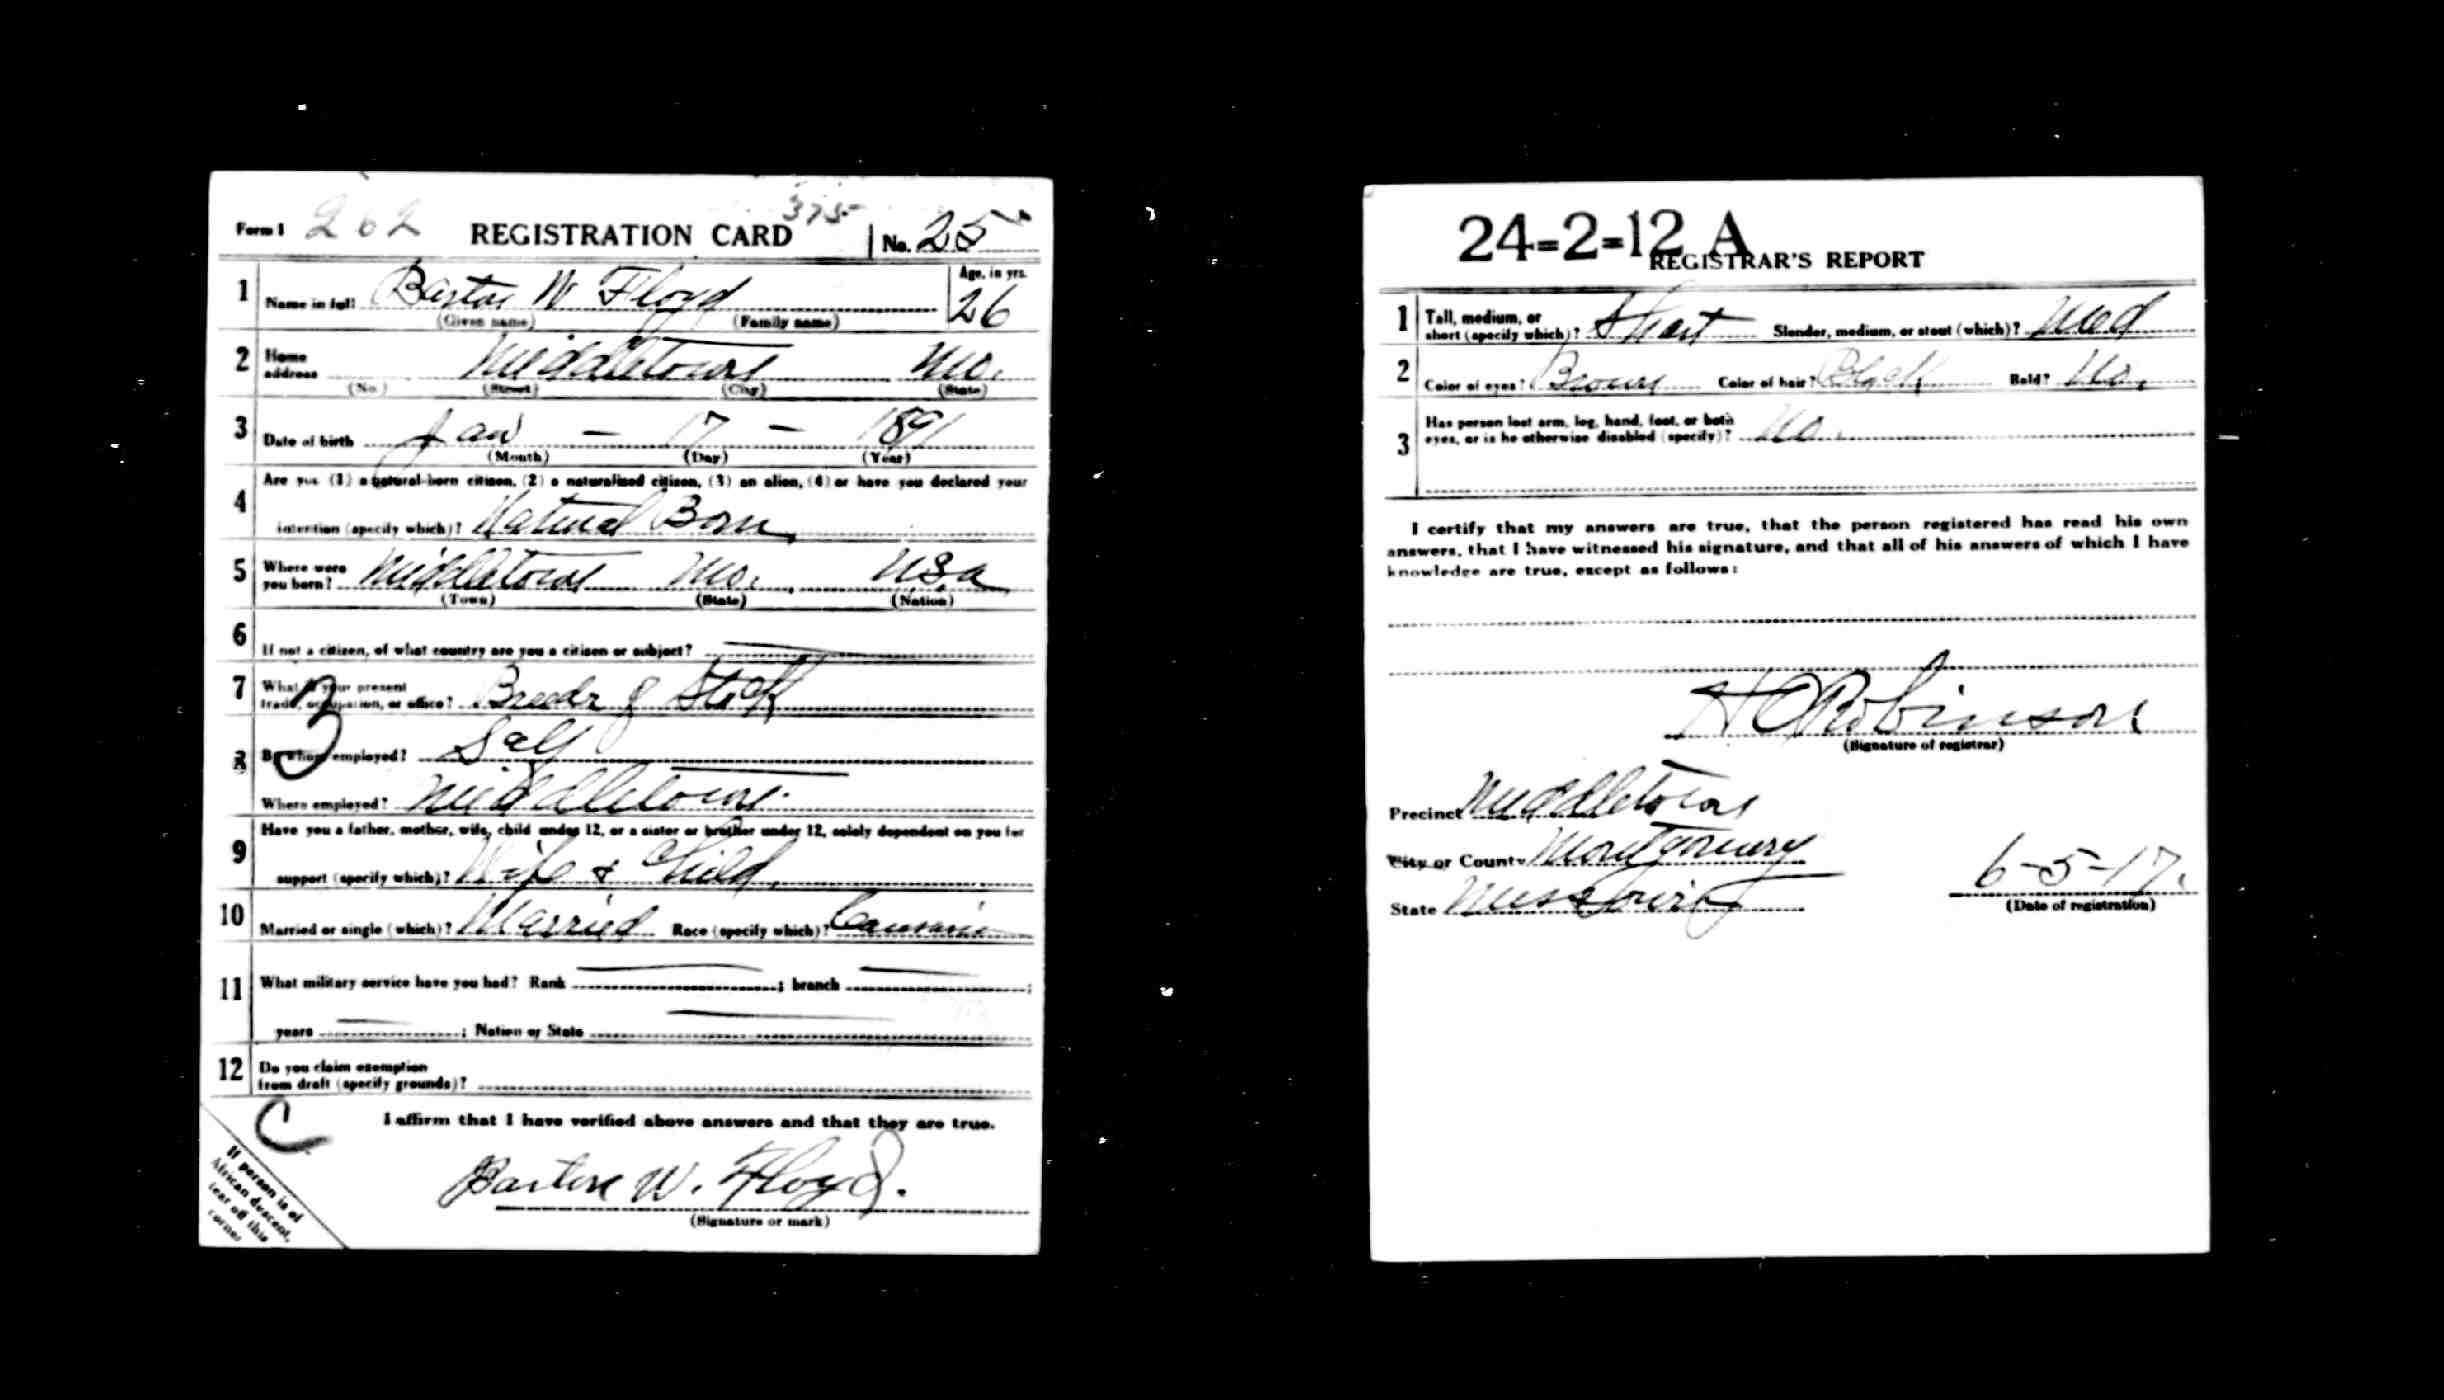 Form 1 262 REGISTRATION CARD 375 No. 25
1 Name in full Barton W Floyd Age, in yrs. 26
(Given name) (Family name)
2 Home address Middletown Mo.
(No.) (Street) (City) (State)
3 Date of birth Jan - 17 - 1891
(Month) (Day) (Year)
4 Are you (1) a natural-born citizen, (2) a naturalized citizen, (3) an alien, (4) or have you declared your
intention (specify which)? Natural Born
5 Where were you born? Middletown Mo. USA
(Town) (State) (Nation)
6 If not a citizen, of what country are you a citizen or subject?
7 What is your present trade, occupation, or office? Breeder of Stock
3
8 By whom employed? Self
Where employed? Middletown.
9 Have you a father, mother, wife, child under 12, or a sister or brother under 12, solely dependent on you for
support (specify which)? Wife & Child
10 Married or single (which)? Married Race (specify which)?
11 What military service have you had? Rank ; branch ;
years ; Nation or State
12 Do you claim exemption
from draft (specify grounds)?
C
I affirm that I have verified above answers and that they are true.
Barton W. Floyd.
(Signature or mark)
If person is of
African descent,
tear off this
corner
24=2=12 A
REGISTRAR'S REPORT
1 Tall, medium, or short (specify which)? Short Slender, medium, or stout (which)? Med
2 Color of eyes? Brown Color of hair? Black Bald? No.
3 Has person lost arm, leg, hand, foot, or both
eyes, or is he otherwise disabled (specify)? No.
I certify that my answers are true, that the person registered has read his own
answers, that I have witnessed his signature, and that all of his answers of which I have
knowledge are true, except as follows:
H O Robinson
(Signature of registrar)
Precinct Middletown
City or County Montgomery
State Missouri 6-5-17.
(Date of registration)